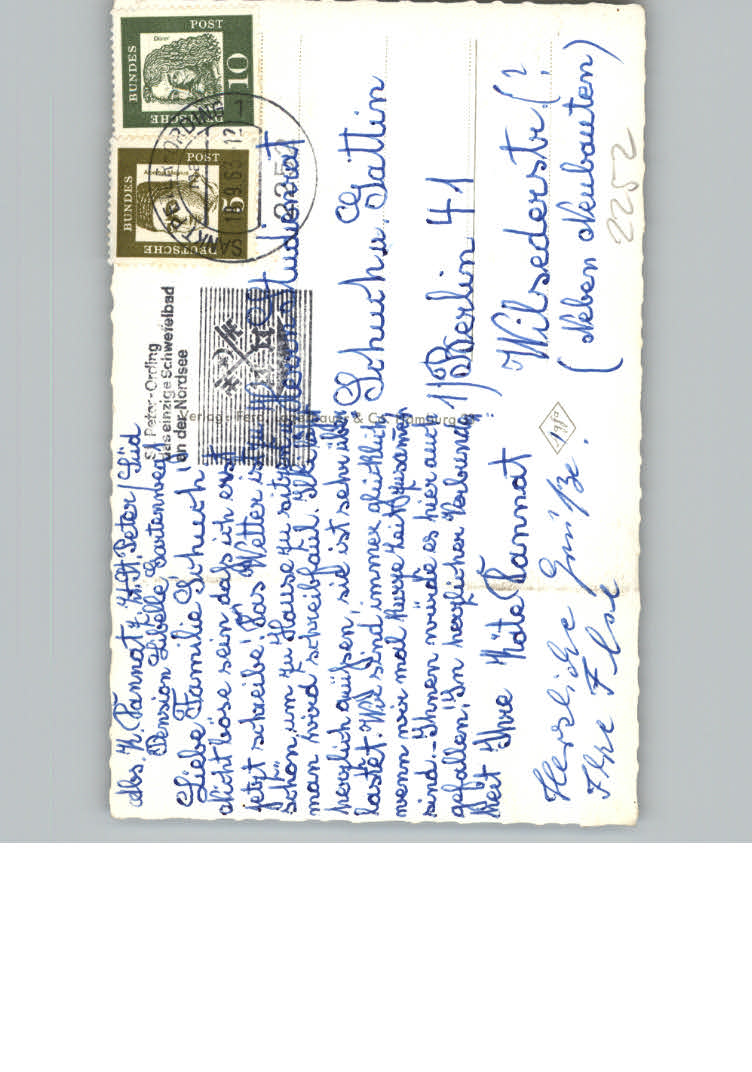 Abs. K. Pannat z. Zt. St. Peter/Süd
Pension Libelle Gartenweg
Liebe Familie Schuch!
Nicht böse sein, daß ich erst
jetzt schreibe! Das Wetter ist
schön, um zu Hause zu sitzen
man wird schreibfaul. Ilse läßt
herzlich grüßen, sie ist sehr über
lastet. Wir sind immer glücklich
wenn wir mal kurze Zeit zusammen
sind. - Ihnen würde es hier auch
gefallen, In herzlicher Verbunden
heit Ihre Käte Pannat
Herzliche Grüße!
Ihre Ilse
DEUTSCHE BUNDESPOST
10
Dürer
DEUTSCHE BUNDESPOST
5
SANKT PETER-ORDING
2252
St. Peter-Ording
das einzige Schwefelbad
an der Nordsee
Verlag: Ferd. & Co., Hamburg
Agfa
Herrn Studienrat
Schuch u. Gattin
1/Berlin 41
Wilsederstr. (?
(Neben Neubauten)
2252